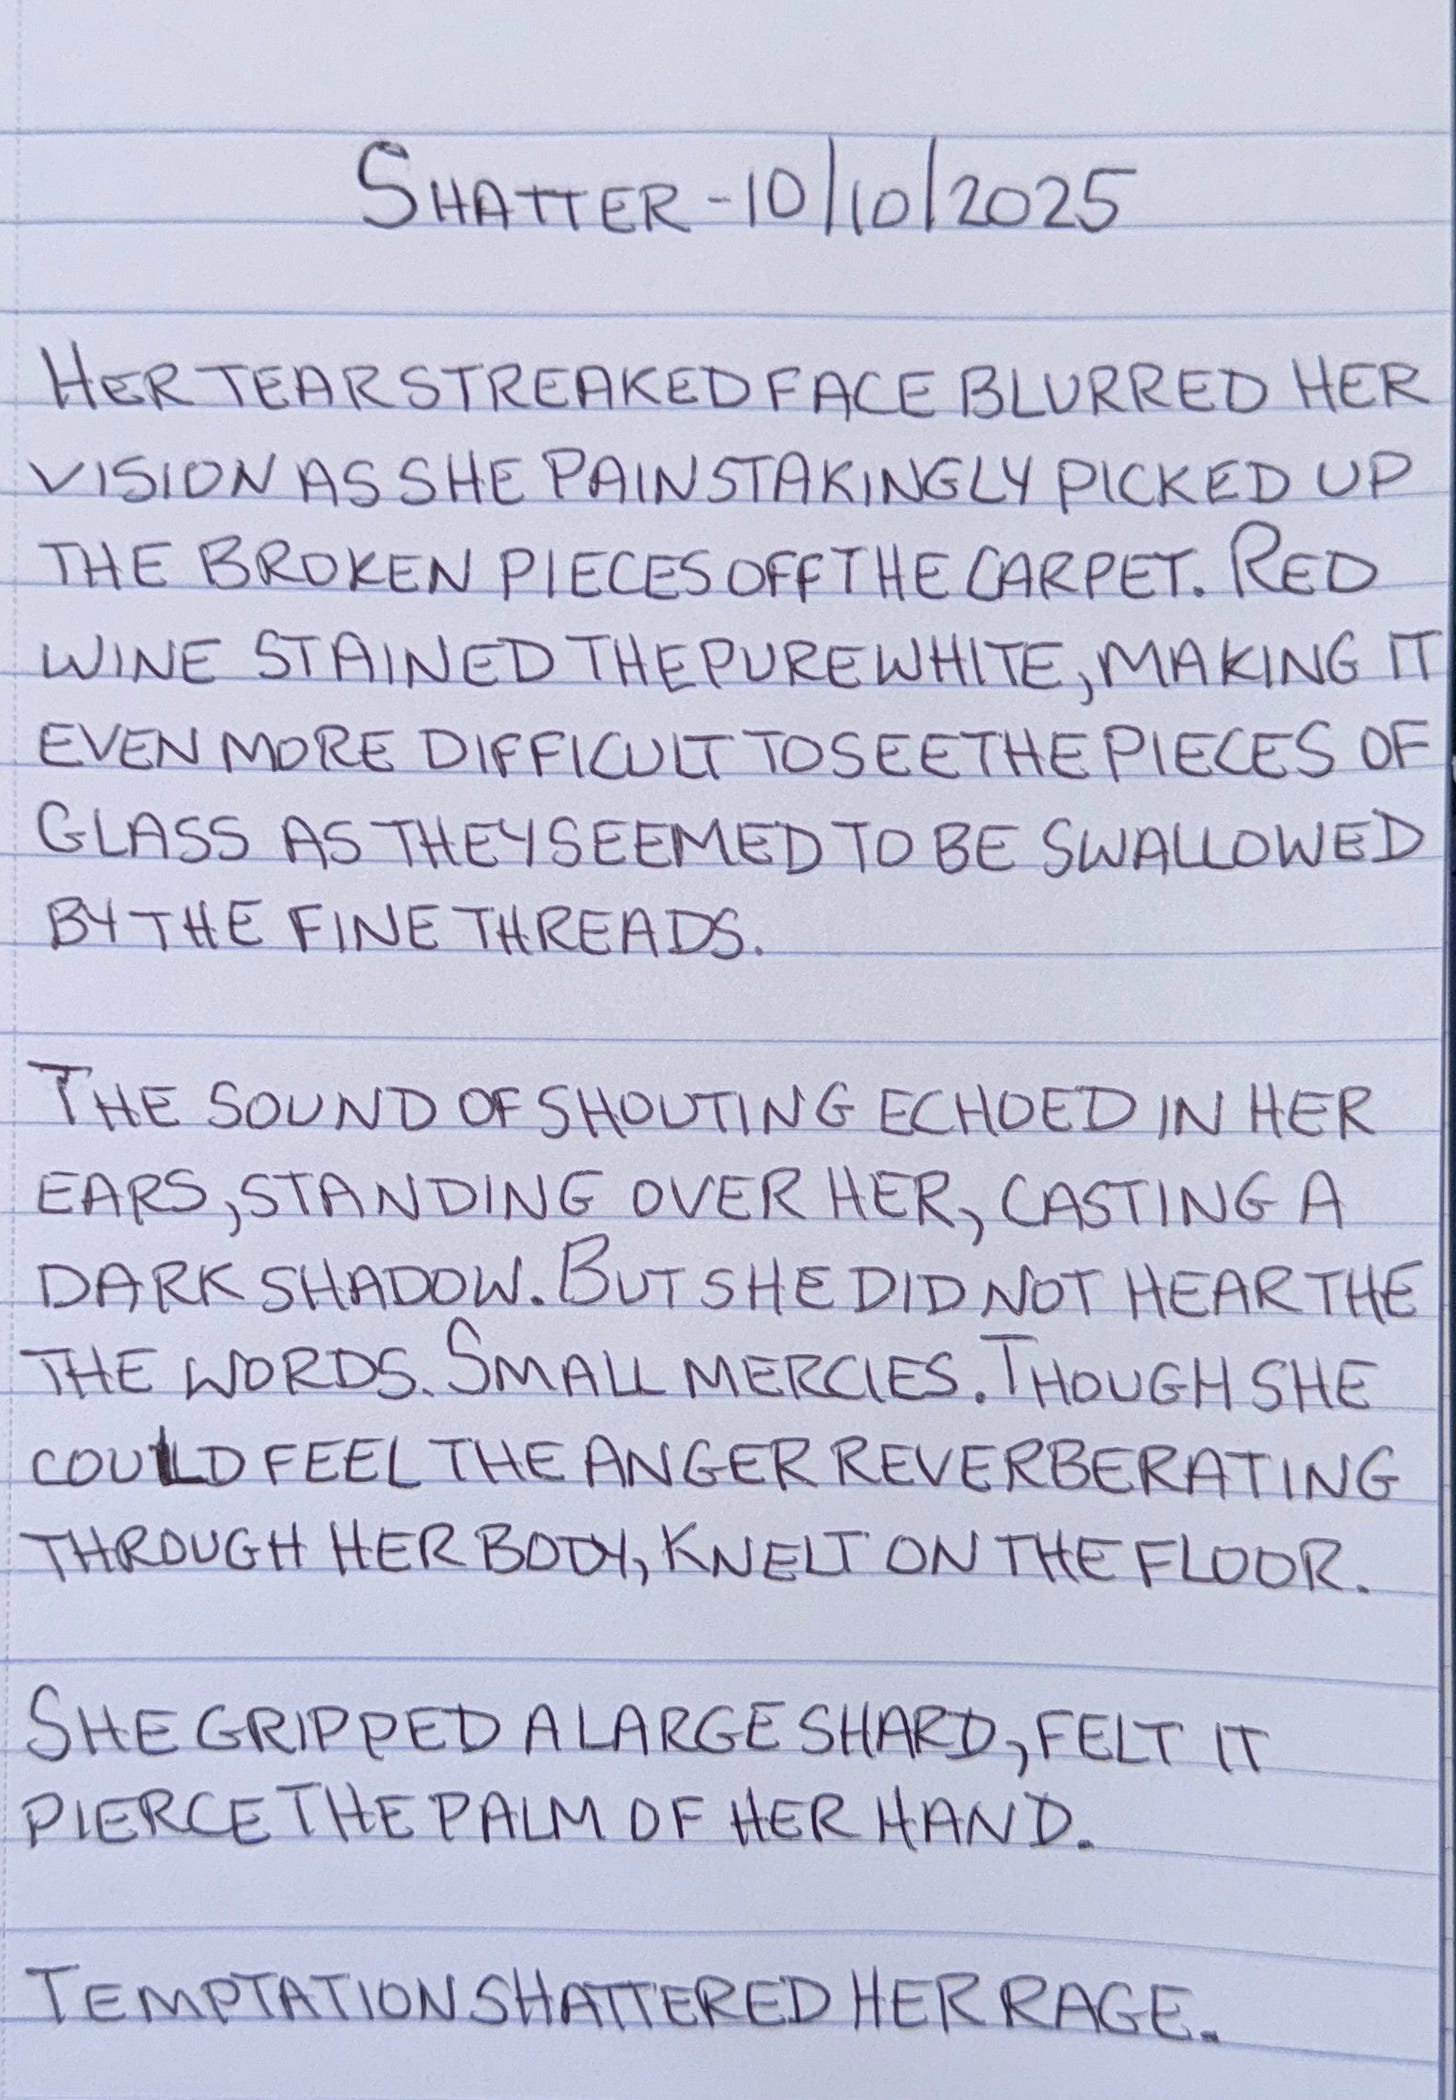 SHATTER - 10/10/2025
HER TEAR STREAKED FACE BLURRED HER
VISION AS SHE PAINSTAKINGLY PICKED UP
THE BROKEN PIECES OFF THE CARPET. RED
WINE STAINED THE PURE WHITE, MAKING IT
EVEN MORE DIFFICULT TO SEE THE PIECES OF
GLASS AS THEY SEEMED TO BE SWALLOWED
BY THE FINE THREADS.
THE SOUND OF SHOUTING ECHOED IN HER
EARS, STANDING OVER HER, CASTING A
DARK SHADOW. BUT SHE DID NOT HEAR THE
THE WORDS. SMALL MERCIES. THOUGH SHE
COULD FEEL THE ANGER REVERBERATING
THROUGH HER BODY, KNELT ON THE FLOOR.
SHE GRIPPED A LARGE SHARD, FELT IT
PIERCE THE PALM OF HER HAND.
TEMPTATION SHATTERED HER RAGE.